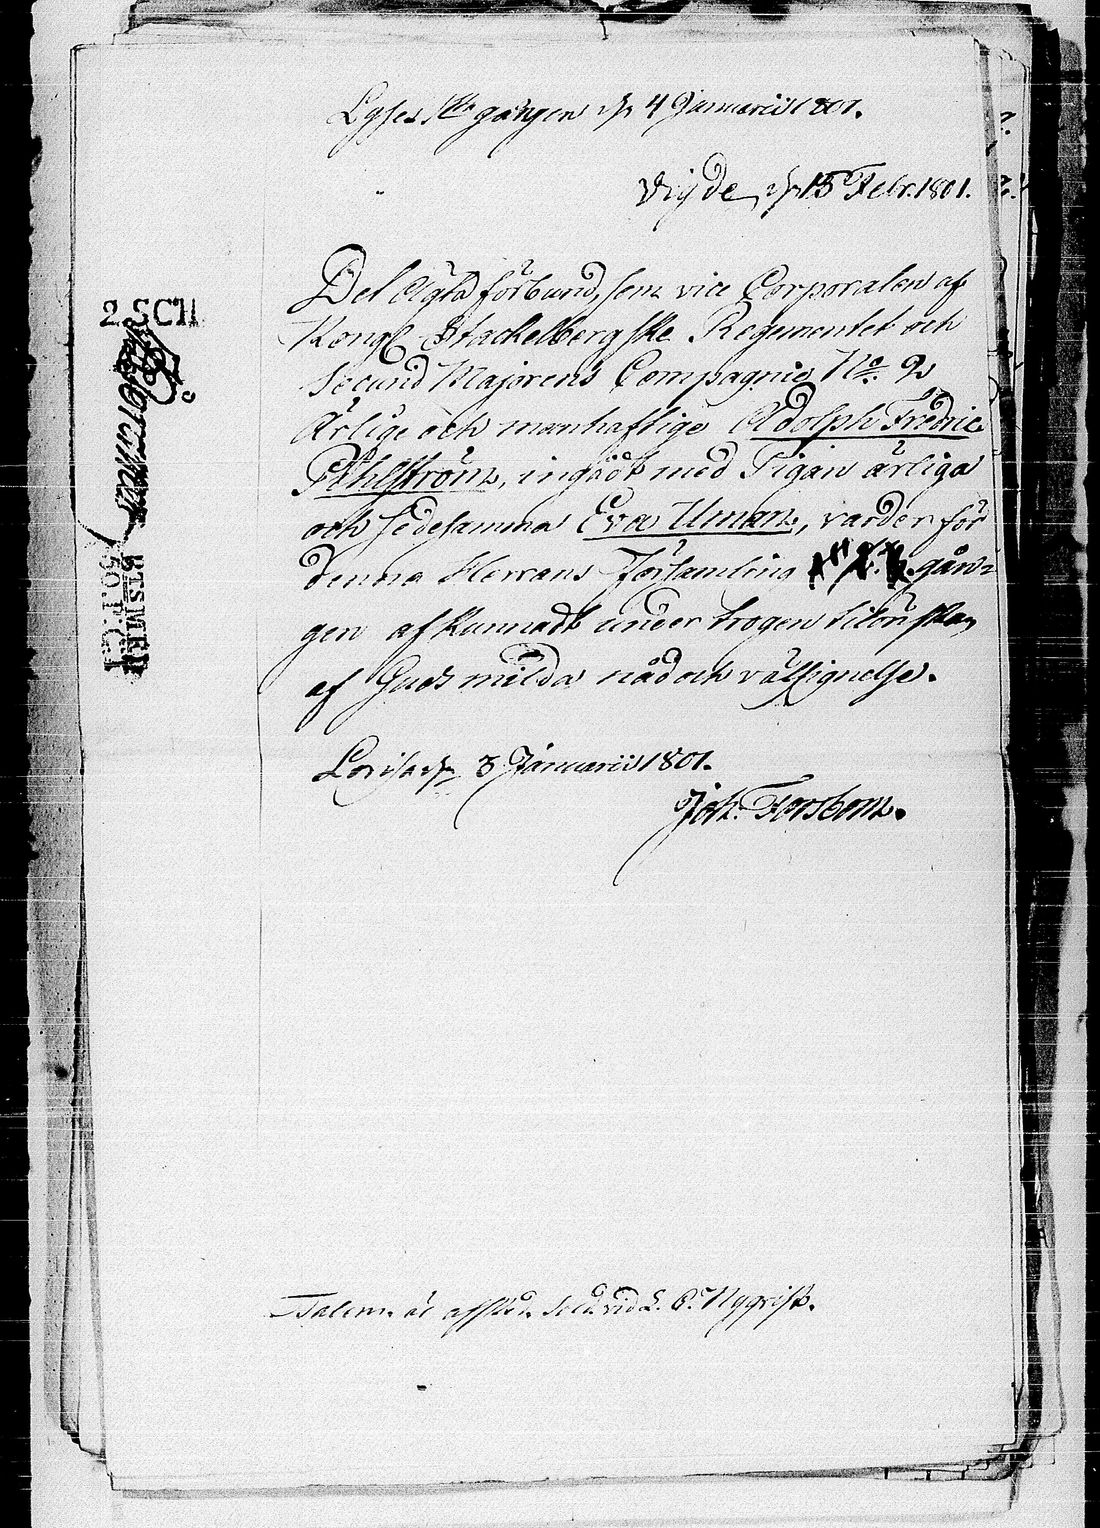 Lyses 1sta gången d. 4 Januarii 1801.
Vigde d. 15 Febr. 1801.
Det Ägta förbund, som vice Corporalen af
Kongl. Stackelbergske Regementet och
Secund Majorens Compagnie No. 2
Ärlige och manhaftige Adolph Fredric
Åhlström, ingådt med Pigan ärliga
och sedesamma Eva Uman, varder för
denna Herrans Församling gån-
gen afkunnadt under trogen tillönskan
af Guds milda nåd och välsignelse.
Lovisa d. 3 Januarii 1801.
Joh. Forsbom.
2. SCH
är vid Nyqvist.